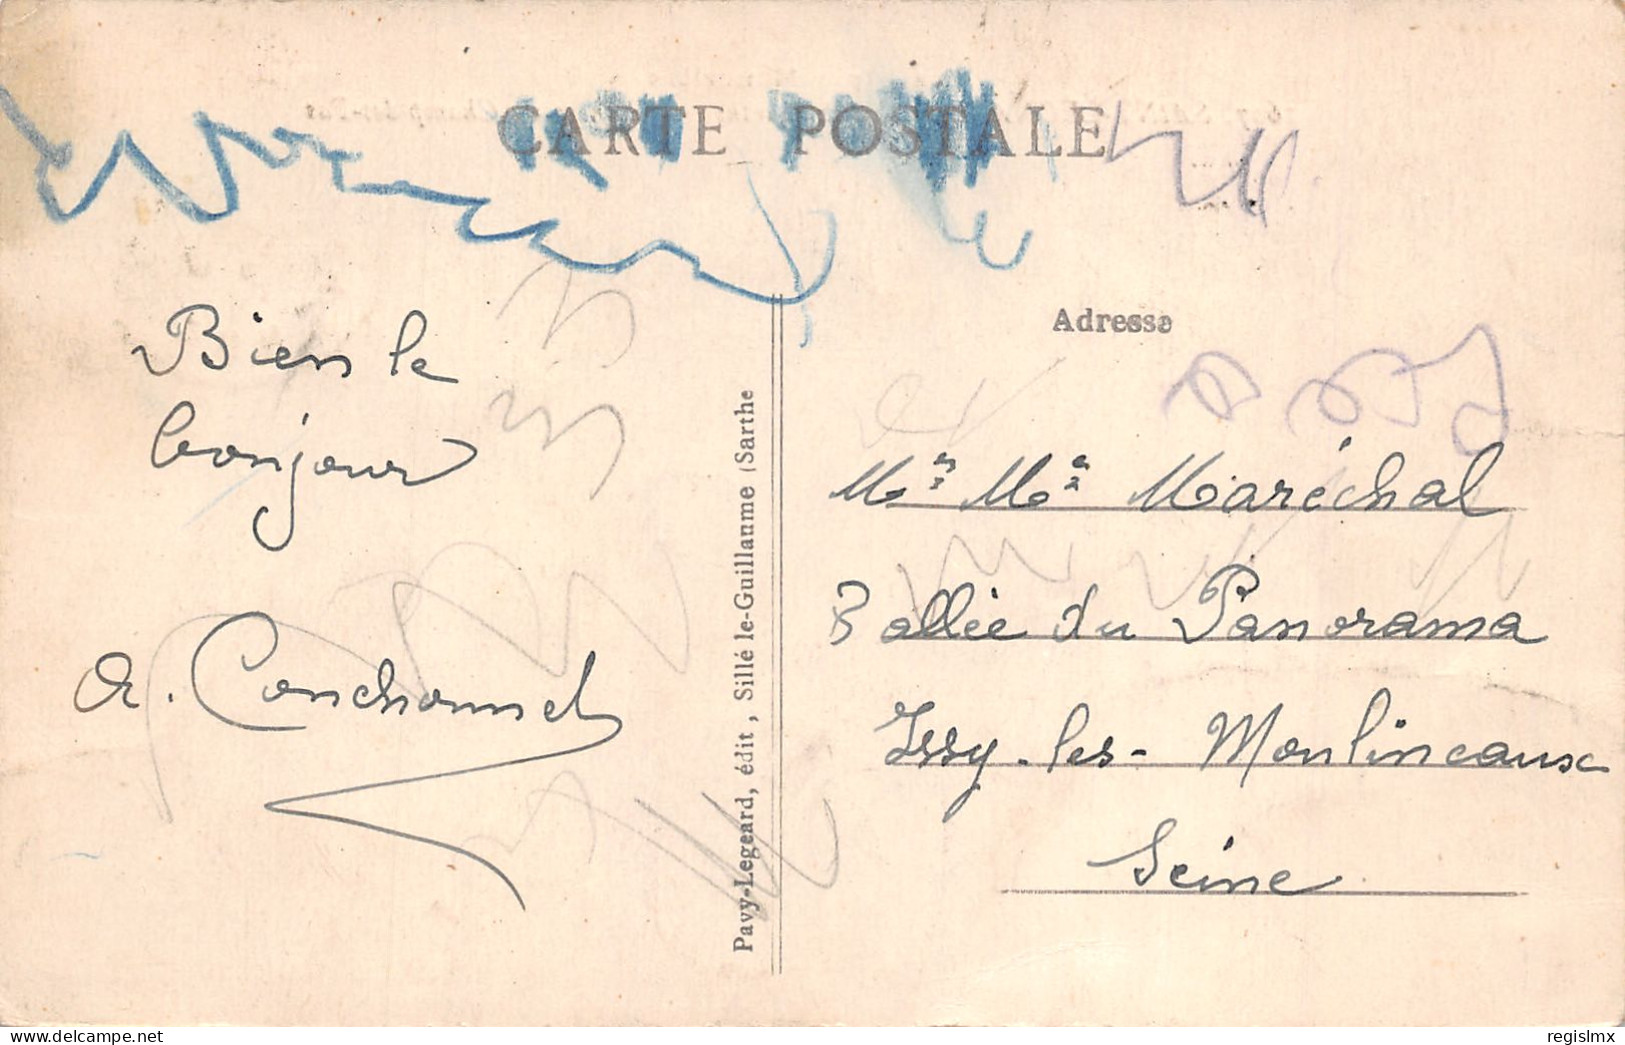 CARTE POSTALE
Bien le
bonjour
A. Conchonnet
Pavy-Legeard, édit, Sillé le-Guillaume (Sarthe
Adresse
Mr Me Maréchal
3 allée du Panorama
Issy-les-Moulineaux
Seine
delcampe.net
regislmx